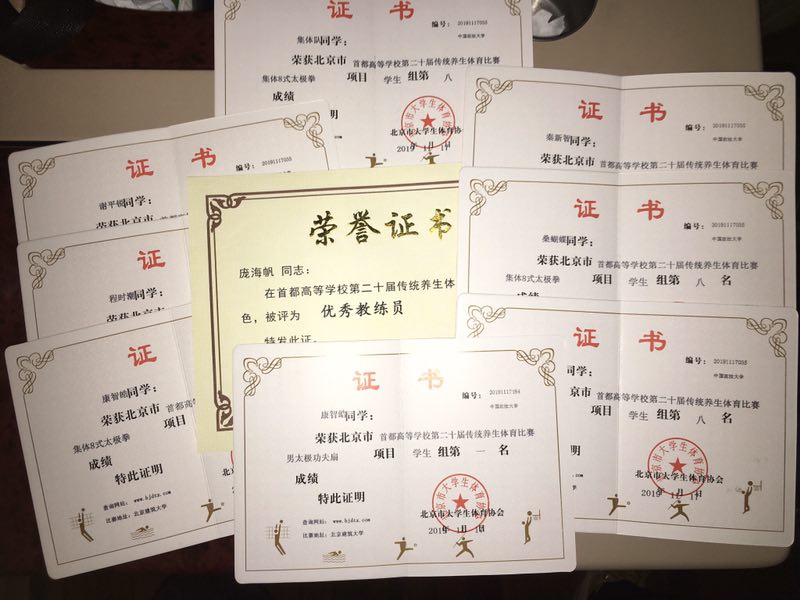 证 书
编号: 20191117055
中国政法大学
集体队同学:
荣获北京市 首都高等学校第二十届传统养生体育比赛
集体8式太极拳 项目 学生 组第 八
成绩
明
北京市大学生体育协
2019年1月1日
证 书
编号: 20191117055
谢平顿同学:
荣获北京市
证 书
编号: 20191117055
中国政法大学
秦新智同学:
荣获北京市 首都高等学校第二十届传统养生体育比赛
证
程时潮同学:
证 书
编号: 20191117055
中国政法大学
桑蝴蝶同学:
荣获北京市 首都高等学校第二十届传统养生体育比赛
集体8式太极拳 项目 学生 组第 八 名
荣誉证书
庞海帆 同志:
在首都高等学校第二十届传统养生体
色,被评为 优秀教练员
特发此证。
证
康智皓同学:
荣获北京市 首都高等学
集体8式太极拳 项目
成绩
特此证明
查询网站: www.bjdtx.com
比赛地址: 北京建筑大学
证 书
编号: 20191117055
中国政法大学
同学:
京市 首都高等学校第二十届传统养生体育比赛
项目 学生 组第 八 名
明
北京市大学生体育协会
2019年1月1日
证 书
编号: 20191117184
中国政法大学
康智皓同学:
荣获北京市 首都高等学校第二十届传统养生体育比赛
男太极功夫扇 项目 学生 组第 一 名
成绩
特此证明
北京市大学生体育协会
2019年1月1日
查询网站: www.bjdtx.com
比赛地址: 北京建筑大学